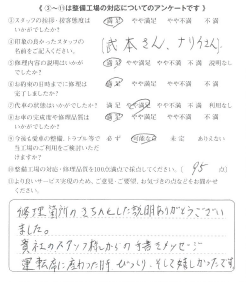 《 ③~⑪は整備工場の対応についてのアンケートです 》
③スタッフの挨拶・接客態度は 満 足 やや満足 やや不満 不 満
いかがでしたか?
④印象の良かったスタッフの
名前をご記入ください。
(武本さん、ナリタさん)
⑤修理内容の説明はいかが 満 足 やや満足 やや不満 説明なし
でしたか?
⑥お約束の日時までに修理は
完了しましたか?
⑦代車の状態はいかがでしたか? 満 足 やや満足 やや不満
⑧お車の完成度や修理品質は 満 足 やや満足 やや不満 不 満
いかがでしたか?
⑨今後も愛車の整備、トラブル等で 必 ず 未 定 ありえない
当工場のご利用をご検討いただ
けますか?
⑩整備工場の対応・修理品質を100点満点で採点してください。( 95 点)
⑪より良いサービス実現のため、ご意見・ご要望、お気づきの点などをお聞かせ
ください。
修理箇所のきちんとした説明ありがとうござい
ました。
貴社のスタッフ
からの手書きメッセージ
運転席に
びっくり、そして嬉しかったです。